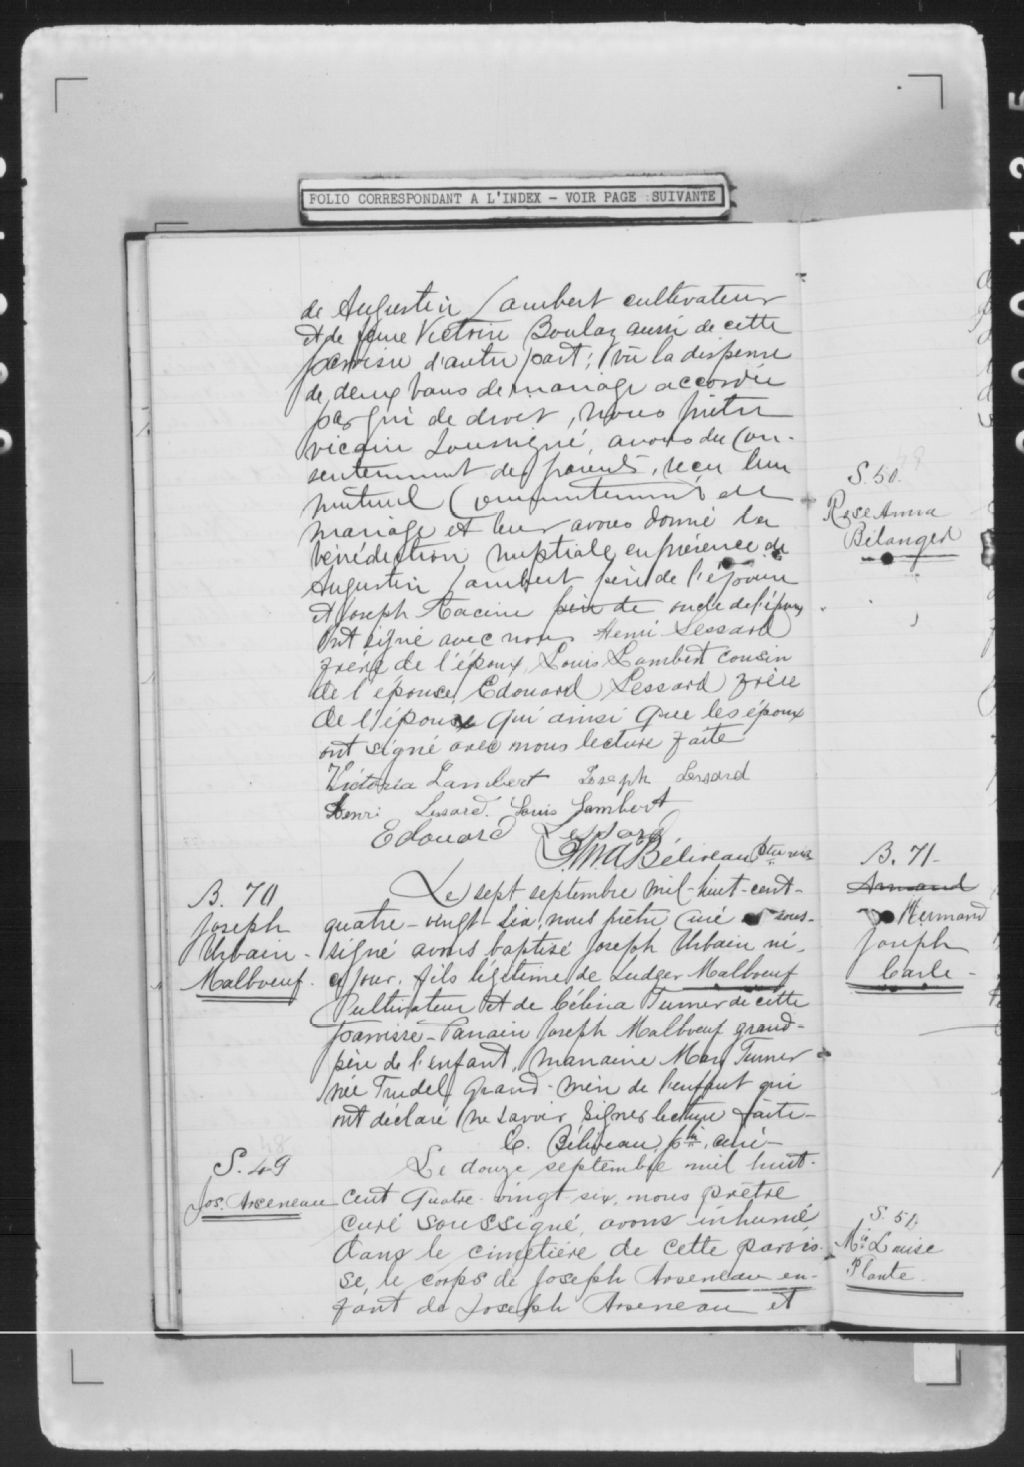 FOLIO CORRESPONDANT A L'INDEX - VOIR PAGE SUIVANTE
de Augustin Lambert cultivateur
et de feue Victoire Boulay aussi de cette
paroisse d'autre part; vu la dispense
de deux bans de mariage accordée
par qui de droit, nous prêtre
vicaire soussigné, avons du con-
sentement des parents, reçu leur
mutuel consentement de
mariage et leur avons donné la
bénédiction nuptiale en présence de
Augustin Lambert père de l'épouse
et Joseph Racine père de oncle de l'époux
ont signé avec nous Henri Lessard
frère de l'époux, Louis Lambert cousin
de l'épouse, Edouard Lessard frère
de l'époux qui ainsi que les époux
ont signé avec nous lecture faite
Victoria Lambert Joseph Lessard
Henri Lessard. Louis Lambert
Edouard Lessard
Béliveau ptre vic
B. 70
Joseph
Urbain
Malboeuf.
Le sept septembre mil-huit-cent-
quatre-vingt-six, nous prêtre curé sous-
signé avons baptisé Joseph Urbain né
ce jour, fils légitime de Ludger Malboeuf
Cultivateur et de Célina Turner de cette
paroisse - Parrain Joseph Malboeuf grand-
père de l'enfant, marraine Mary Turner
née Trudel grand-mère de l'enfant qui
ont déclaré ne savoir signer lecture faite-
C. Béliveau ptre, curé-
S. 49
Jos. Arseneau
Le douze septembre mil huit-
cent quatre-vingt-six, nous prêtre
curé soussigné, avons inhumé
dans le cimetière de cette parois-
se, le corps de Joseph Arseneau en-
fant de Joseph Arseneau et
S. 50.
Rose Anna
Bélanger
B. 71-
Armand
Hermand
Joseph
Carle-
S. 51.
Mie Louise
Plante.